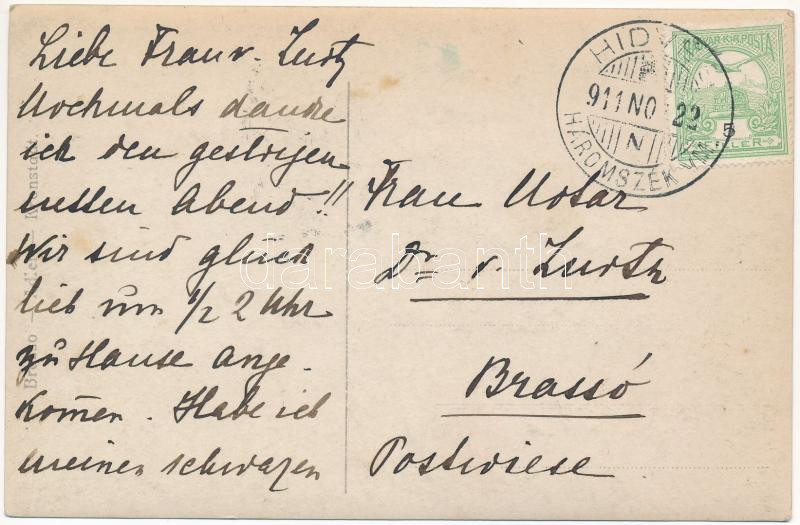 Liebe Frau v. Zurtz
Nochmals danke
ich den gestrigen
netten Abend!!
Wir sind glück
lich um 1/2 2 Uhr
zu Hause ange-
kommen. Habe ich
meinen schwarzen
Frau Notar
Dr v. Zurtz
Brassó
Postwiese
HIDV
911 NO 22
N
HÁROMSZÉK VM.
MAGYAR KIR. POSTA
5
darabanth